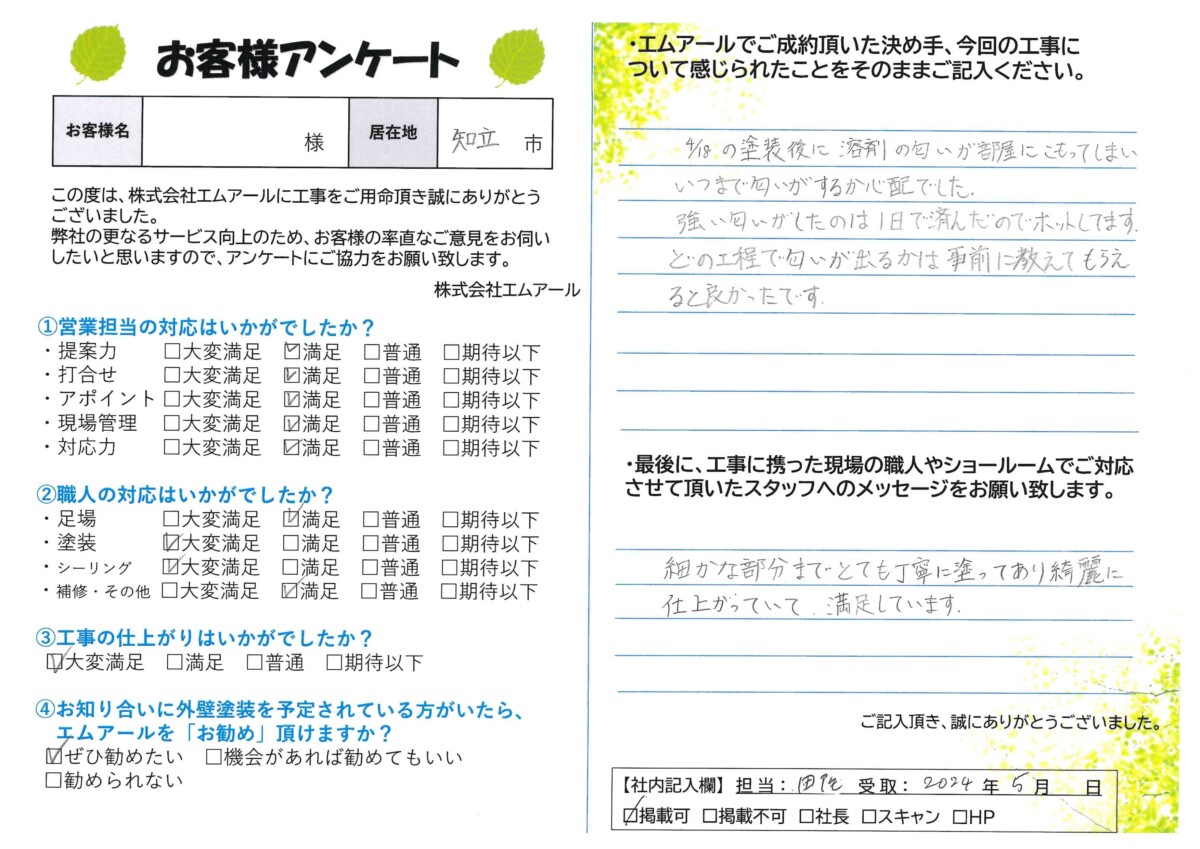 お客様アンケート
お客様名 様 居在地 知立 市
この度は、株式会社エムアールに工事をご用命頂き誠にありがとう
ございました。
弊社の更なるサービス向上のため、お客様の率直なご意見をお伺い
したいと思いますので、アンケートにご協力をお願い致します。
株式会社エムアール
①営業担当の対応はいかがでしたか？
・提案力 □大変満足 ☑満足 □普通 □期待以下
・打合せ □大変満足 ☑満足 □普通 □期待以下
・アポイント □大変満足 ☑満足 □普通 □期待以下
・現場管理 □大変満足 ☑満足 □普通 □期待以下
・対応力 □大変満足 ☑満足 □普通 □期待以下
②職人の対応はいかがでしたか？
・足場 □大変満足 ☑満足 □普通 □期待以下
・塗装 ☑大変満足 □満足 □普通 □期待以下
・シーリング ☑大変満足 □満足 □普通 □期待以下
・補修・その他 □大変満足 ☑満足 □普通 □期待以下
③工事の仕上がりはいかがでしたか？
☑大変満足 □満足 □普通 □期待以下
④お知り合いに外壁塗装を予定されている方がいたら、
エムアールを「お勧め」頂けますか？
☑ぜひ勧めたい □機会があれば勧めてもいい
□勧められない
・エムアールでご成約頂いた決め手、今回の工事に
ついて感じられたことをそのままご記入ください。
4/18の塗装後に溶剤の匂いが部屋にこもってしまい
いつまで匂いがするか心配でした.
強い匂いがしたのは1日で済んだのでホットしてます.
どの工程で匂いが出るかは事前に教えてもらえ
ると良かったです.
・最後に、工事に携った現場の職人やショールームでご対応
させて頂いたスタッフへのメッセージをお願い致します。
細かな部分までとても丁寧に塗ってあり綺麗に
仕上がっていて、満足しています.
ご記入頂き、誠にありがとうございました。
【社内記入欄】担当： 受取：2024年5月 日
☑掲載可 □掲載不可 □社長 □スキャン □HP